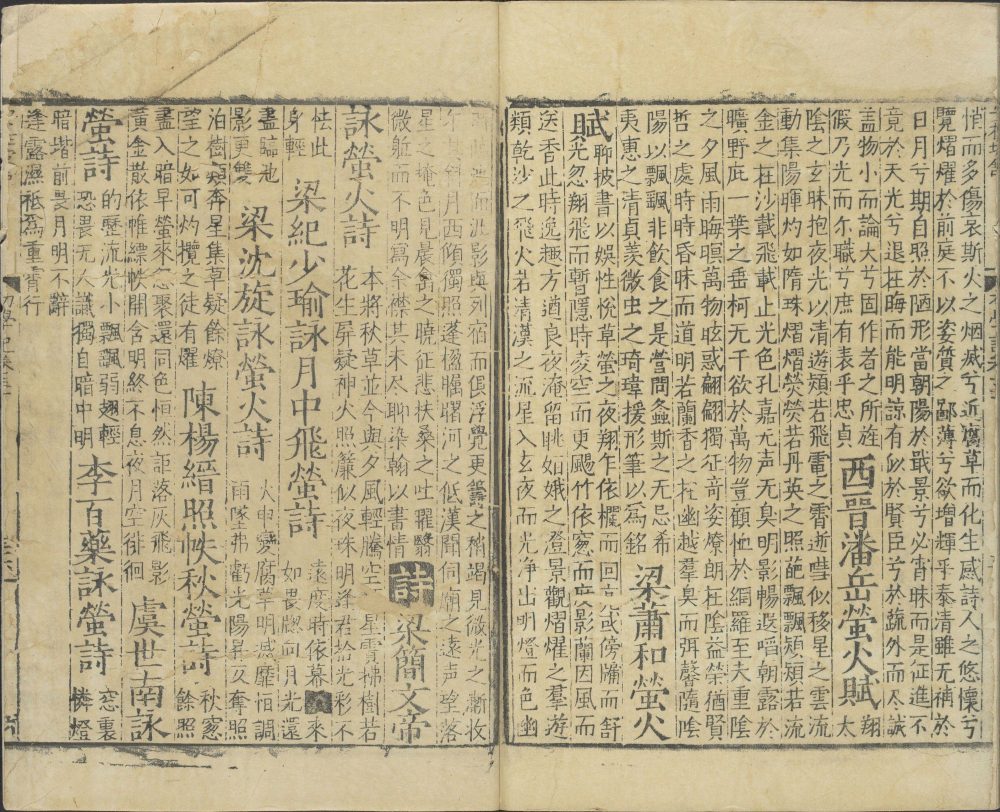 悄而多傷哀斯火之烟滅兮近腐草而化生感詩人之悠懷兮
覽熠燿於前庭不以姿質之鄙薄兮欲增輝乎泰清雖无補於
日月兮期自照於陋形當朝陽於戢景兮必宵昧而是征進不
竟於天光兮退在晦而能明諒有似於賢臣兮於疏外而尽誠
盖物小而論大兮固作者之所旌
假乃光而尔職兮庶有表乎忠貞
西晉潘岳螢火賦
翔
太
陰之玄昧抱夜光以清遊熲若飛電之霄逝嘒似移星之雲流
動集陽暉灼如隋珠熠熠熒熒若丹英之照葩飄飄熲熲若流
金之在沙載飛載止光色孔嘉无声无臭明影暢遐唱朝露於
曠野庇一葉之垂柯无干欲於萬物豈顧恤於網羅至夫重陰
之夕風雨晦暝萬物眩惑翩翩獨征奇姿燎朗在陰益榮猶賢
哲之處時時昏昧而道明若蘭香之在幽越羣臭而弥馨隋陰
陽以飄颻非飲食之是營問螽斯之无忌希
夷惠之清貞羡微虫之琦瑋援形筆以為銘
梁蕭和螢火
賦
聊披書以娛性悅草螢之夜翔乍依欄而回亮或傍牖而舒
光忽翔飛而暫隱時凌空而更颺竹依窓而度影蘭因風而
送香此時逸趣方遒良夜淹留眺如娥之登景觀熠燿之羣游
類乾沙之飛火若清漢之流星入玄夜而光净出明燈而色幽
洪影與列宿而俱浮覺更籌之稍竭見微光之漸收
斜月西傾獨照蓬楹矚曜河之低漢聞伺廟之遠声望落
星之掩色見晨鳥之曉征悲扶桑之吐曜翳
微軀而不明寫余襟其未尽聊染翰以書情
詩
梁簡文帝
詠螢火詩
本將秋草並今與夕風輕騰空類星霣拂樹若
花生屏疑神火照簾似夜珠明逢君拾光彩不
怯此
身輕
梁紀少瑜詠月中飛螢詩
遠度時依幕來
如畏牕向月光還
盡臨池
影更雙
梁沈旋詠螢火詩
火中變腐草明滅靡恒調
雨墜弗虧光陽昇反奪照
泊樹類奔星集草疑餘燎
望之如可攬之徒有燿
陳楊縉照帙秋螢詩
秋窓
餘照
盡入暗早螢來忽聚還同色恒然詎落灰飛影
黃金散依帷縹帙開含明終不息夜月空徘徊
虞世南詠
螢詩
的歷流光小飄颻弱翅輕
恐畏无人識獨自暗中明
李百藥詠螢詩
窓裏
憐燈
暗堦前畏月明不辭
逢露濕祗為重宵行